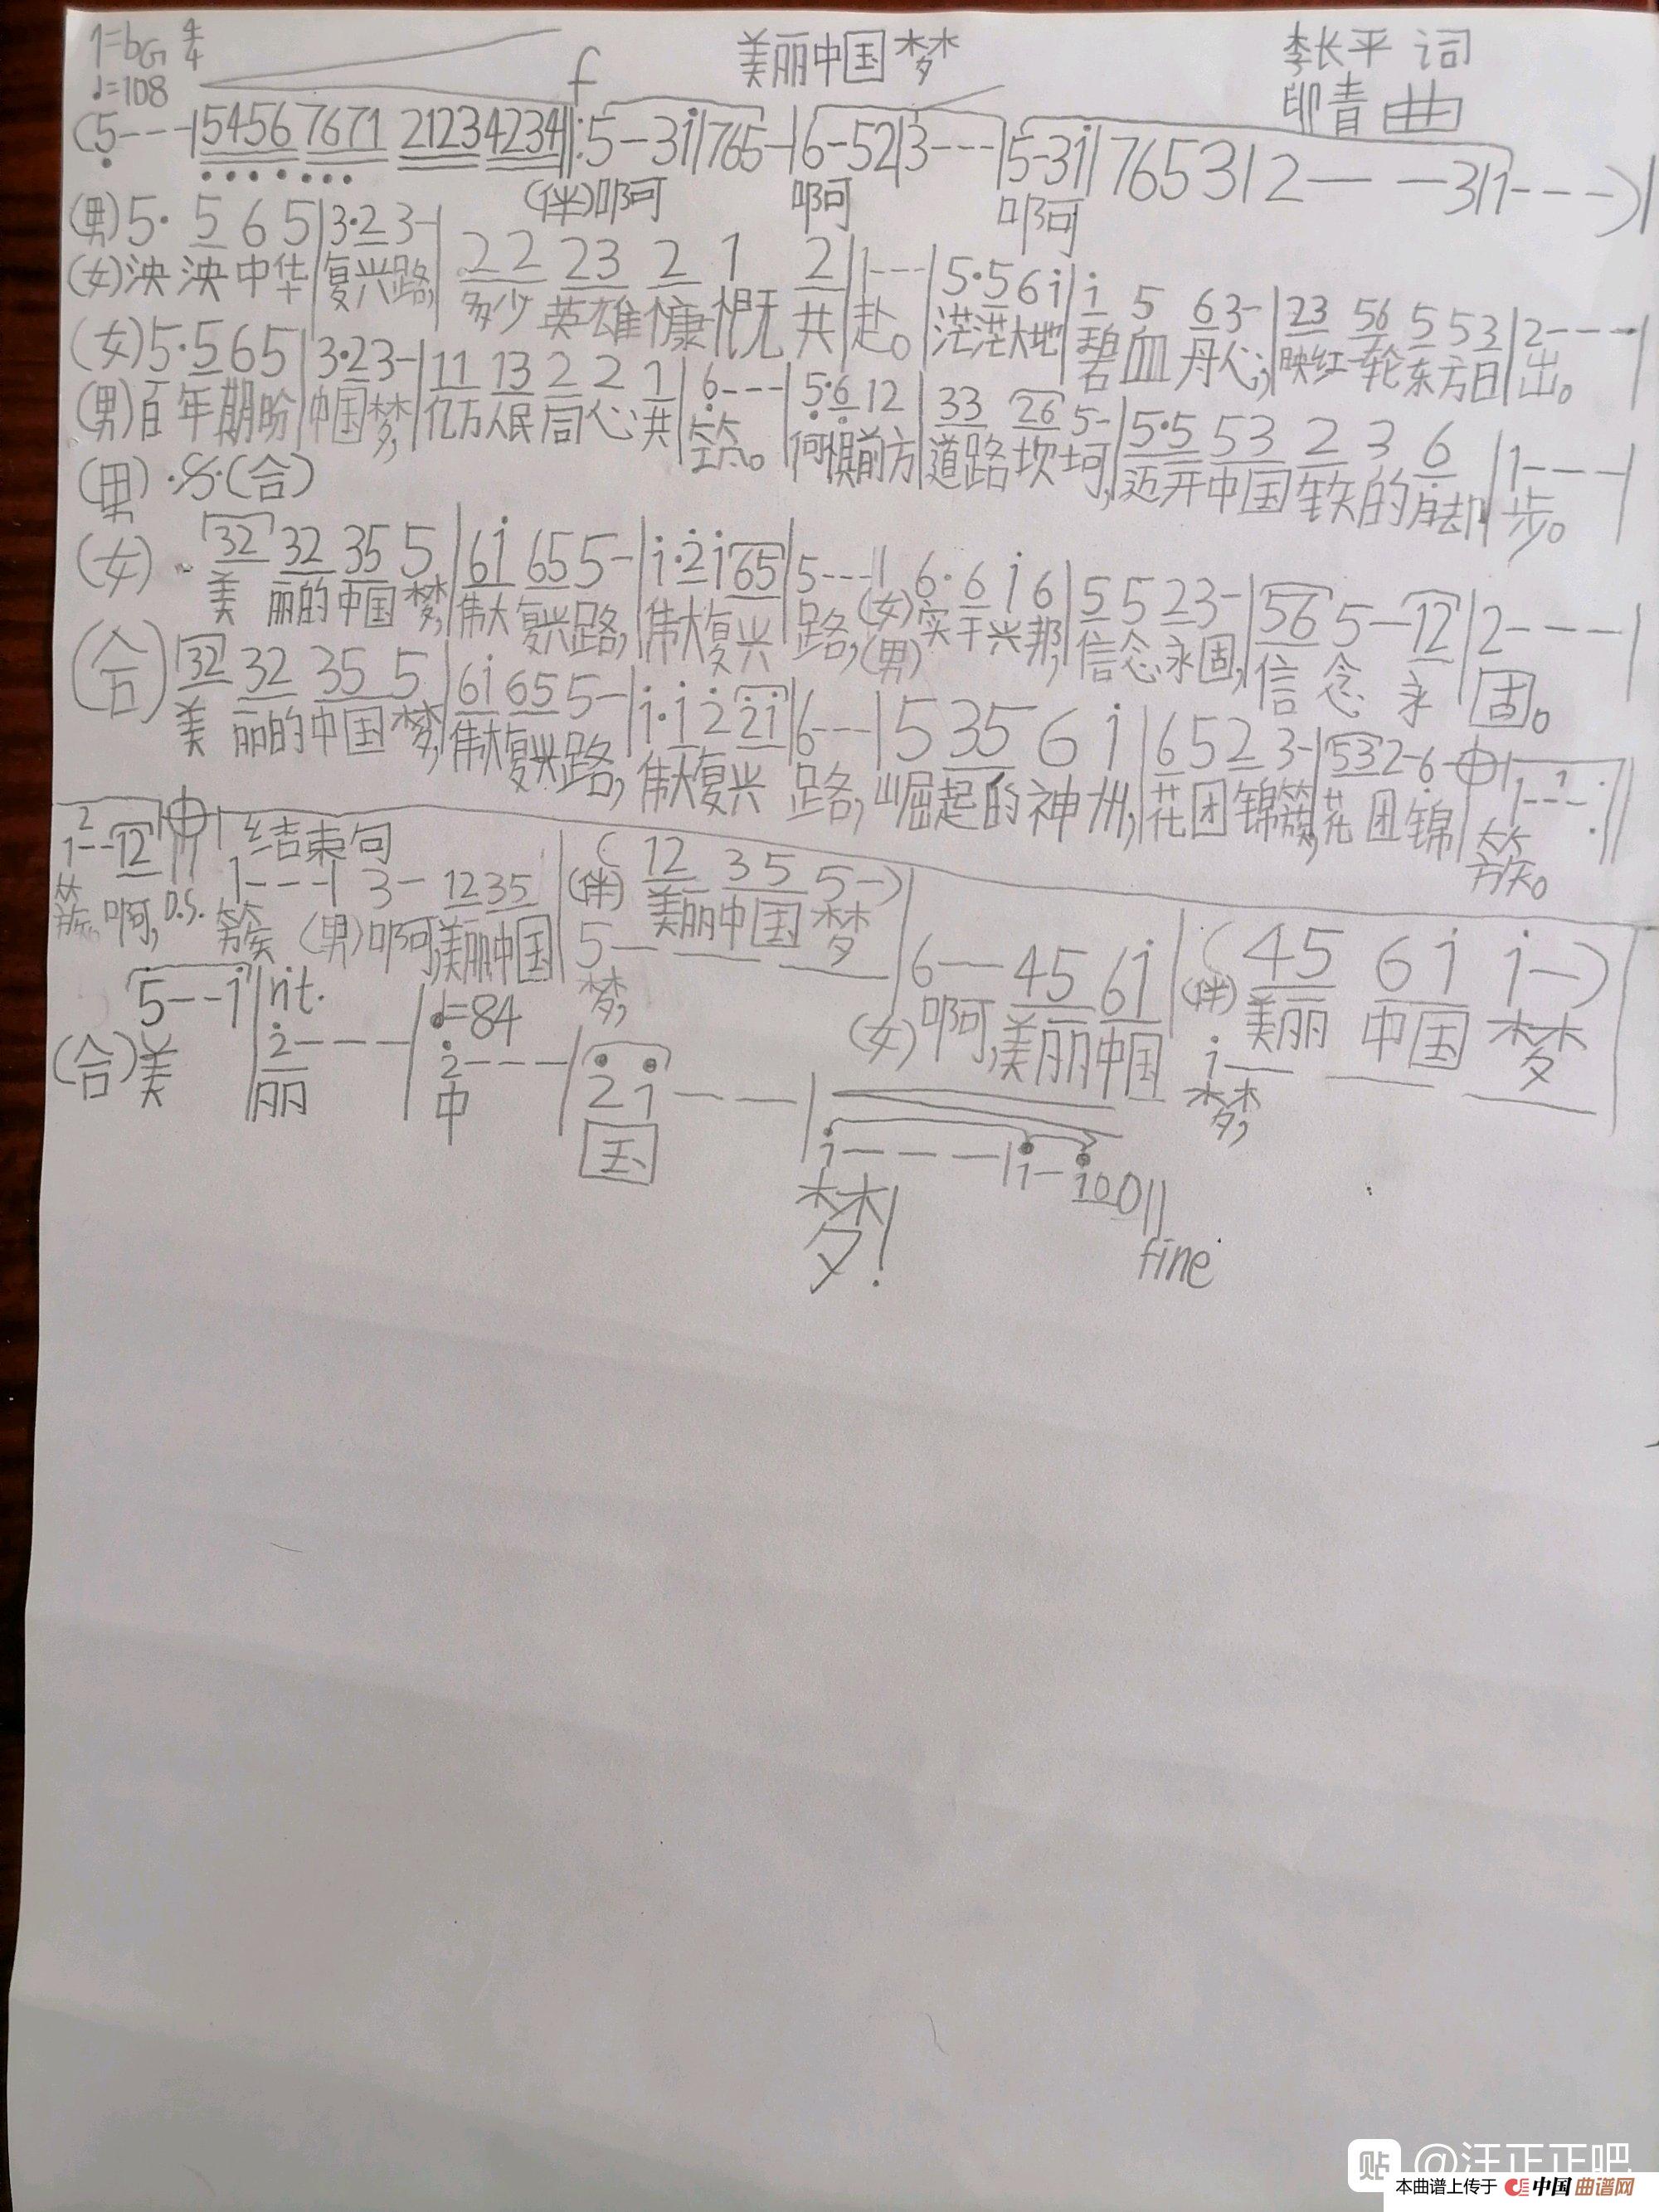 1=bG 4/4 美丽中国梦 李长平 词
♩=108 f 印青 曲
(5---|5456 7671 2123 4234‖:5-3i|765-|6-52|3---|5-3i|76531|2---31|1---)|
(伴)啊 啊 啊
(男)5· 5 6 5|3·2 3-|22 23 2 1 2|1---|5·5 6 i|i 5 6 3-|23 56 5 53|2---|
(女)泱泱中华|复兴路,多少英雄慷慨共|赴。茫茫大地|碧血丹心;|映红一轮东方日|出。
(女)5·5 6 5|3·2 3-|11 13 2 2 1|6---|5·6 12|33 26 5-|5·5 53 2 3 6|1---|
(男)百年期盼|中国梦,|亿万人民同心共|筑。何惧前方|道路坎坷,|迈开中国铁的脚|步。
(男)·S·(合)
(女) 32 32 35 5|6i 65 5-|i·2 i 65|5---|6·6 i 6|5 5 2 3-|56 5-12|2---|
美丽的中国梦,|伟大复兴路,|伟大复兴|路,(女)(男)实干兴邦,|信念永固,|信念永|固。
(合)32 32 35 5|6i 65 5-|i·i 2 2i|6---|5 35 6 i|6 5 2 3-|53 2-6|1---:‖
美丽的中国梦,|伟大复兴路,|伟大复兴路,崛起的神州,|花团锦簇,花团锦|簇。
2 1--12‖结束句
1---|3-1235|(12 35 5-)
簇。啊,D.S. 簇 (男)啊,美丽中国|(伴)美丽中国梦
5- 梦,
6-45 6i|(45 6i i-)
(女)啊,美丽中国|(伴)美丽中国梦
i- 梦,
5--i|rit. 2---|♩=84 2---|2 1--|i---|i-i00‖
(合)美|丽 中 国 梦!
fine
贴 @汪正正吧
本曲谱上传于 中国曲谱网